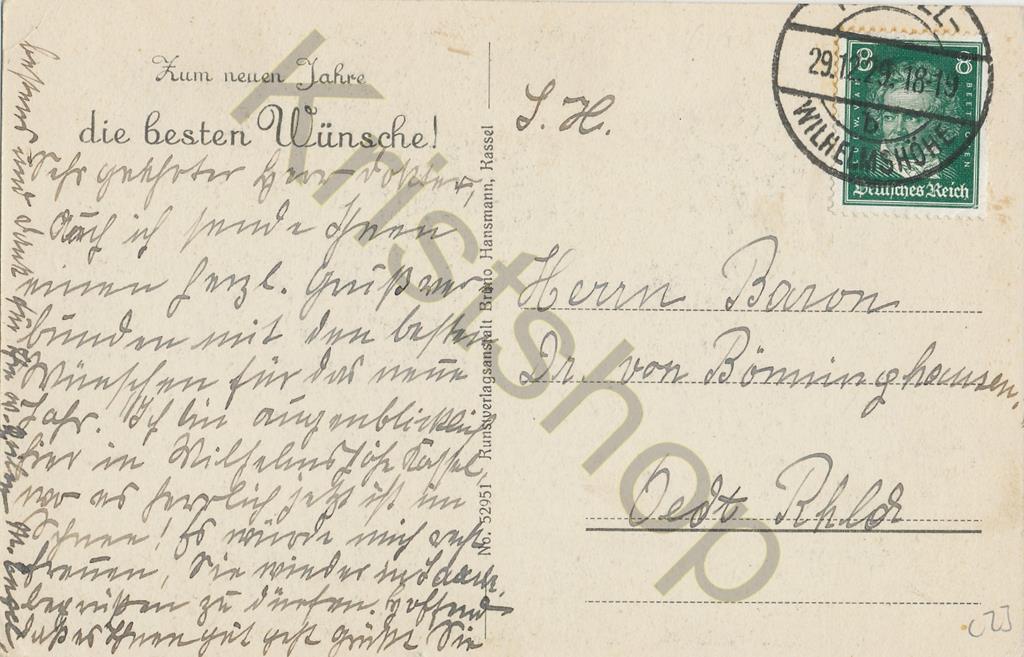 Zum neuen Jahre
die besten Wünsche!
Sehr geehrter Herr Doktor,
Auch ich sende Ihnen
einen herzl. Gruß ver-
bunden mit den besten
Wünschen für das neue
Jahr. Ich bin augenblicklich
hier in Wilhelmshöhe Kassel,
wo es herrlich jetzt ist im
Schnee! Es würde mich sehr
freuen, Sie wieder in
begrüßen zu dürfen. Hoffend
daß es Ihnen gut geht grüßt Sie
bestens und dankt
M. Engel
No. 52951 Kunstverlagsanstalt Bruno Hansmann, Kassel
S. H.
29.12.29. 18-19
b
WILHELMSHÖHE
8 8
Deutsches Reich
Herrn Baron
Dr. von Bönninghausen.
Oedt Rhld
Kristshop